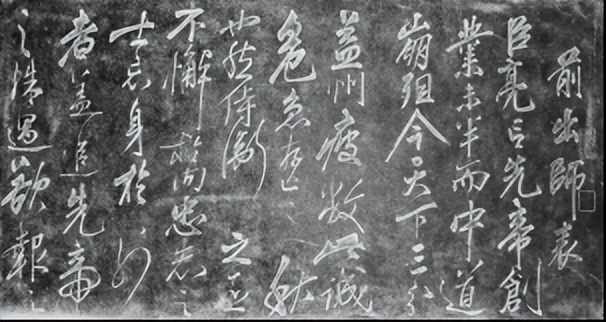 前出師表
臣亮言先帝創
業未半而中道
崩殂今天下三分
益州疲敝此誠
危急存亡之秋
也然侍衛之臣
不懈於内忠志之
士忘身於外
者蓋追先帝
之殊遇欲報之